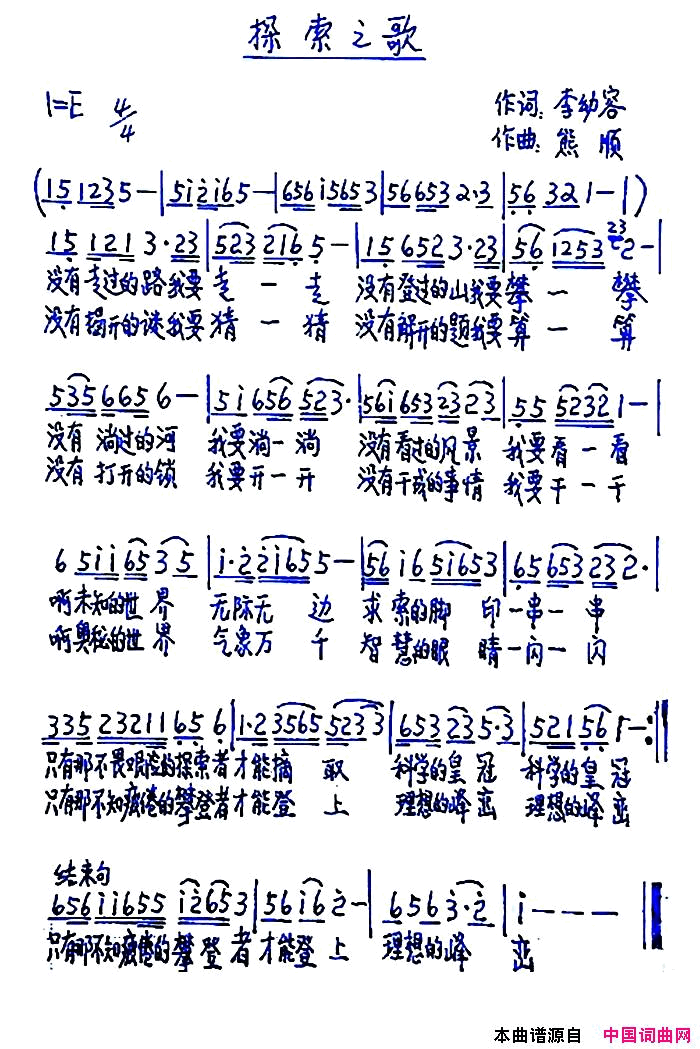 探索之歌
1=E 4/4
作词:李幼容
作曲:熊顺
(15 1235— | 5i2i65— | 656i5653 | 56653 2·3 | 56 321— | )
15 1213·23 | 523 2165— | 15 6523·23 | 56 1253 232— |
没有走过的路我要走一走 没有登过的山我要攀一攀
没有揭开的谜我要猜一猜 没有解开的题我要算一算
535 6656— | 5i656 523· | 56i653 2323 | 55 52321— |
没有淌过的河 我要淌一淌 没有看过的风景 我要看一看
没有打开的锁 我要开一开 没有干成的事情 我要干一干
6 5ii6535 | i·22i655— | 56 i65i653 | 65653 232· |
啊未知的世界 无际无边 求索的脚印一串一串
啊奥秘的世界 气象万千 智慧的眼睛一闪一闪
335 23211656 | 1·235655233 | 653 235·3 | 521561— :||
只有那不畏艰险的探索者才能摘取 科学的皇冠 科学的皇冠
只有那不知疲倦的攀登者才能登上 理想的峰峦 理想的峰峦
结束句
656ii655 i2653 | 56i62— | 6563·2 | i——— ||
只有那不知疲倦的攀登者才能登上 理想的峰峦
本曲谱源自 中国词曲网